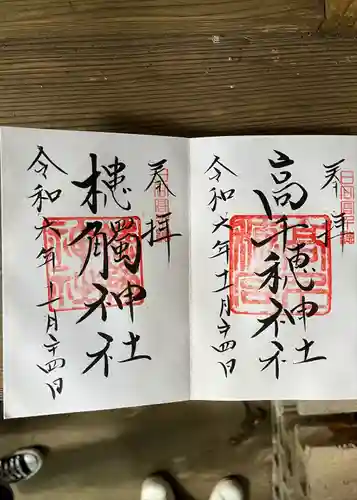 奉拝
高千穂神社
令和六年十一月二十四日
奉拝
槵觸神社
令和六年十一月二十四日